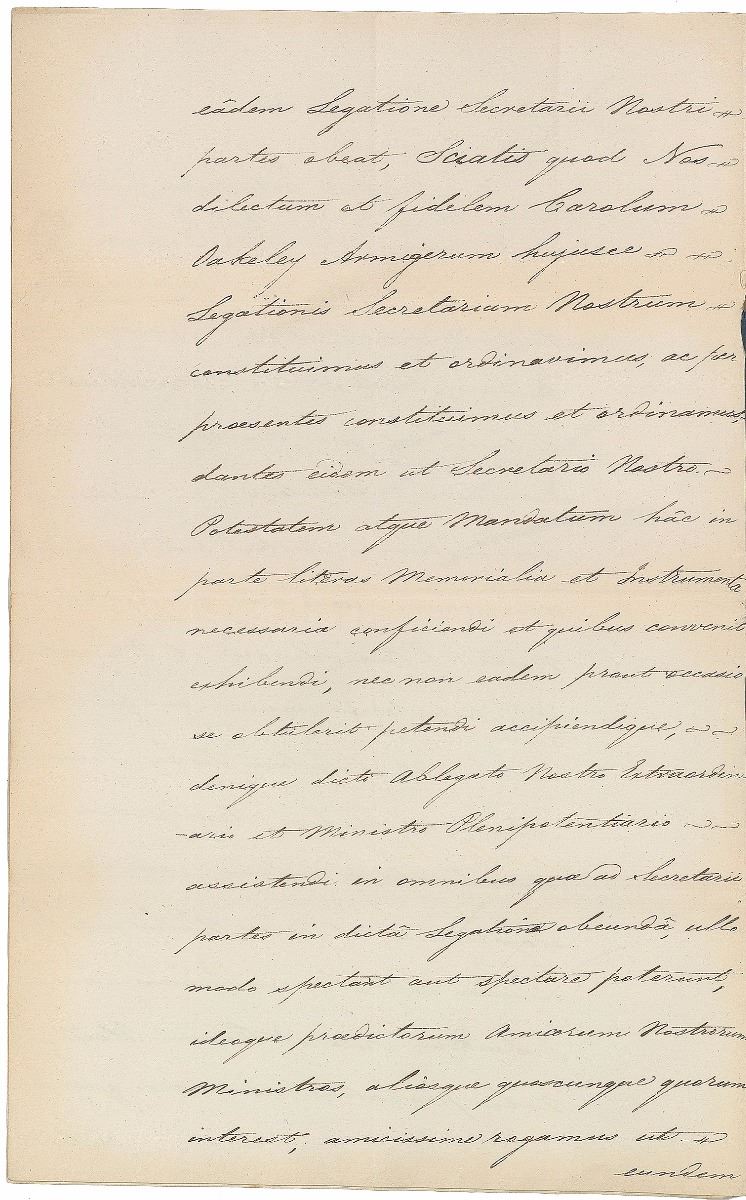 eâdem Legatione Secretarii Nostri
partes obeat, Sciatis quod Nos
dilectum et fidelem Carolum
Oakeley Armigerum hujusce
Legationis Secretarium Nostrum
constituimus et ordinavimus, ac per
præsentes constituimus et ordinamus,
dantes eidem ut Secretario Nostro
Potestatem atque Mandatum hâc in
parte literas Memorialia et Instrumenta
necessaria conficiendi et quibus convenit
exhibendi, nec non eadem prout occasio
se obtulerit petendi accipiendique,
denique dicto Ablegato Nostro Extraordin
-ario et Ministro Plenipotentiario
assistendi in omnibus quæ ad Secretarii
partes in dictâ Legatione obeundâ, ullo
modo spectant aut spectare poterunt,
ideoque prædictorum Amicorum Nostrorum
Ministros, aliosque quoscunque quorum
interest, amicissime rogamus ut
eundem